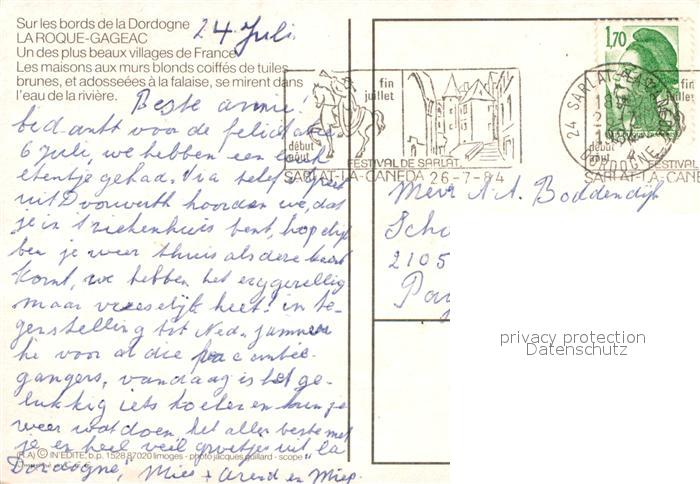 Sur les bords de la Dordogne
LA ROQUE-GAGEAC
Un des plus beaux villages de France
Les maisons aux murs blonds coiffés de tuiles
brunes, et adossées à la falaise, se mirent dans
l'eau de la rivière.
24 Juli
Beste annie!
bedankt voor de felicitatie
6 Juli, we hebben een
etentje gehad. Via
uit Doorwerth hoorden we, dat
je in t ziekenhuis bent, hopelijk
ben je weer thuis als deze kaart
komt, we hebben het erg gezellig
maar vreeselijk heet! in te-
genstelling tot Ned. jammer
he voor al die vacantie-
gangers, vandaag is het ge-
lukkig iets koeler en kun je
weer wat doen. het allerbeste met
je en heel veel groetjes uit "la
Dordogne", Mies + Arend en Miep.
(PLA) © IN'EDITE, b.p. 1528 87020 limoges - photo jacques guillard - scope
1,70
fin
juillet
début
août
FESTIVAL DE SARLAT
SARLAT-LA-CANEDA 26-7-84
24 SARLAT-LA-CANEDA
DORDOGNE
fin
juillet
début
août
FESTIVAL
SARLAT-LA-CANE
Mevr A.A. Boddendijk
Scho
2105
Pa
privacy protection
Datenschutz